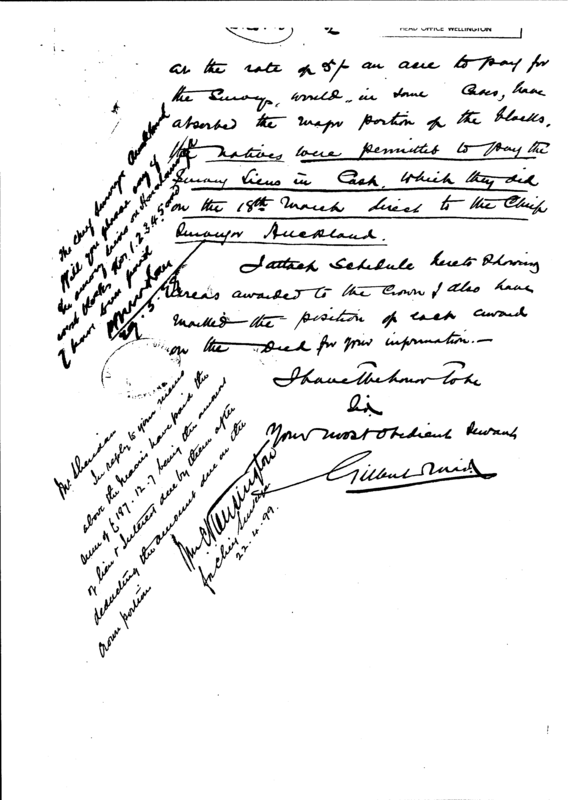 HEAD OFFICE WELLINGTON
at the rate of 5/- an acre to pay for
the Survey, would, in some Cases, have
absorbed the major portion of the blocks,
the natives were permitted to pay the
Survey Liens in Cash, which they did
on the 18th March direct to the Chief
Surveyor Auckland.
I attach Schedule hereto Showing
areas awarded to the Crown I also have
marked the position of each award
on the for your information.—
I have the honor to be
Sir
Your most obedient Servant
Gilbert Mair
The Chief Surveyor Auckland
Will you please say if
the survey liens on
west blocks Nos. 1. 2 3 4 5 and
7 have been paid
29. 3. 99
Mr Sheridan
In reply to your minute
above the Maoris have paid the
sum of £197. 12. 7 being the amount
of lien & Interest due by them after
deducting the amount due on the
Crown portion
Kensington
for Chief Surveyor
22. 4. 99.